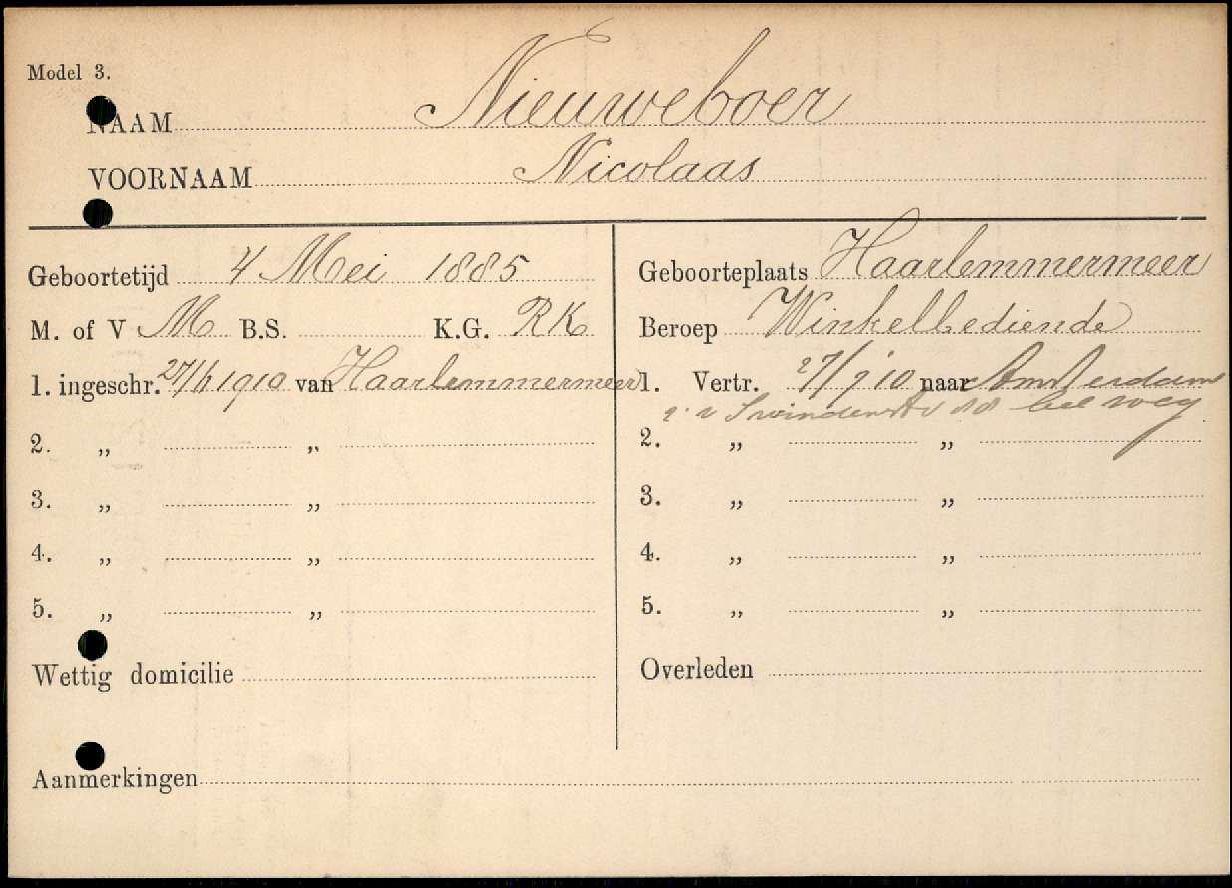 Model 3.
NAAM Nieuweboer
VOORNAAM Nicolaas
Geboortetijd 4 Mei 1885
M. of V M B.S. K.G. RK
1. ingeschr. 1910 van Haarlemmermeer
2. „ „
3. „ „
4. „ „
5. „ „
Wettig domicilie
Geboorteplaats Haarlemmermeer
Beroep Winkelbediende
1. Vertr. 27/9 '10 naar Amsterdam
weg
2. „ „
3. „ „
4. „ „
5. „ „
Overleden
Aanmerkingen